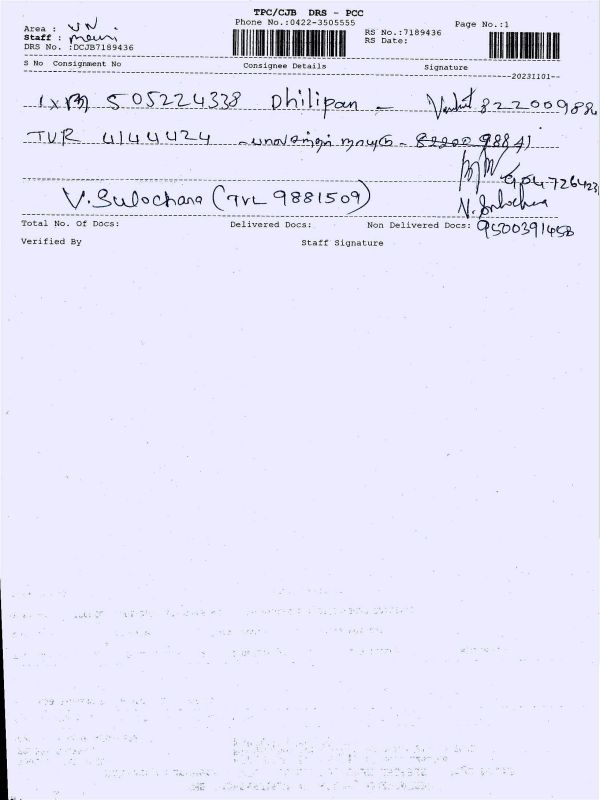 TPC/CJB DRS - PCC
Phone No.:0422-3505555
Page No.:1
Area : VN
Staff : mani
DRS No. :DCJB7189436
RS No.:7189436
RS Date:
S No Consignment No Consignee Details Signature
20231101
505224338 Dhilipan - Venkat 822200988
TVR 4144424 - 82200 98841
904726423
V. Sulochana (TVL 9881509) V. Sulochana
9500391458
Total No. Of Docs: Delivered Docs: Non Delivered Docs:
Verified By Staff Signature